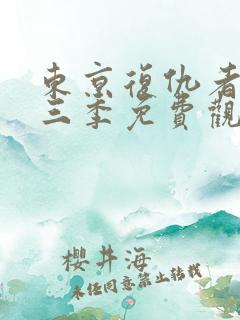 東京復仇者
三季免費觀
櫻井海
未任同意禁止转载